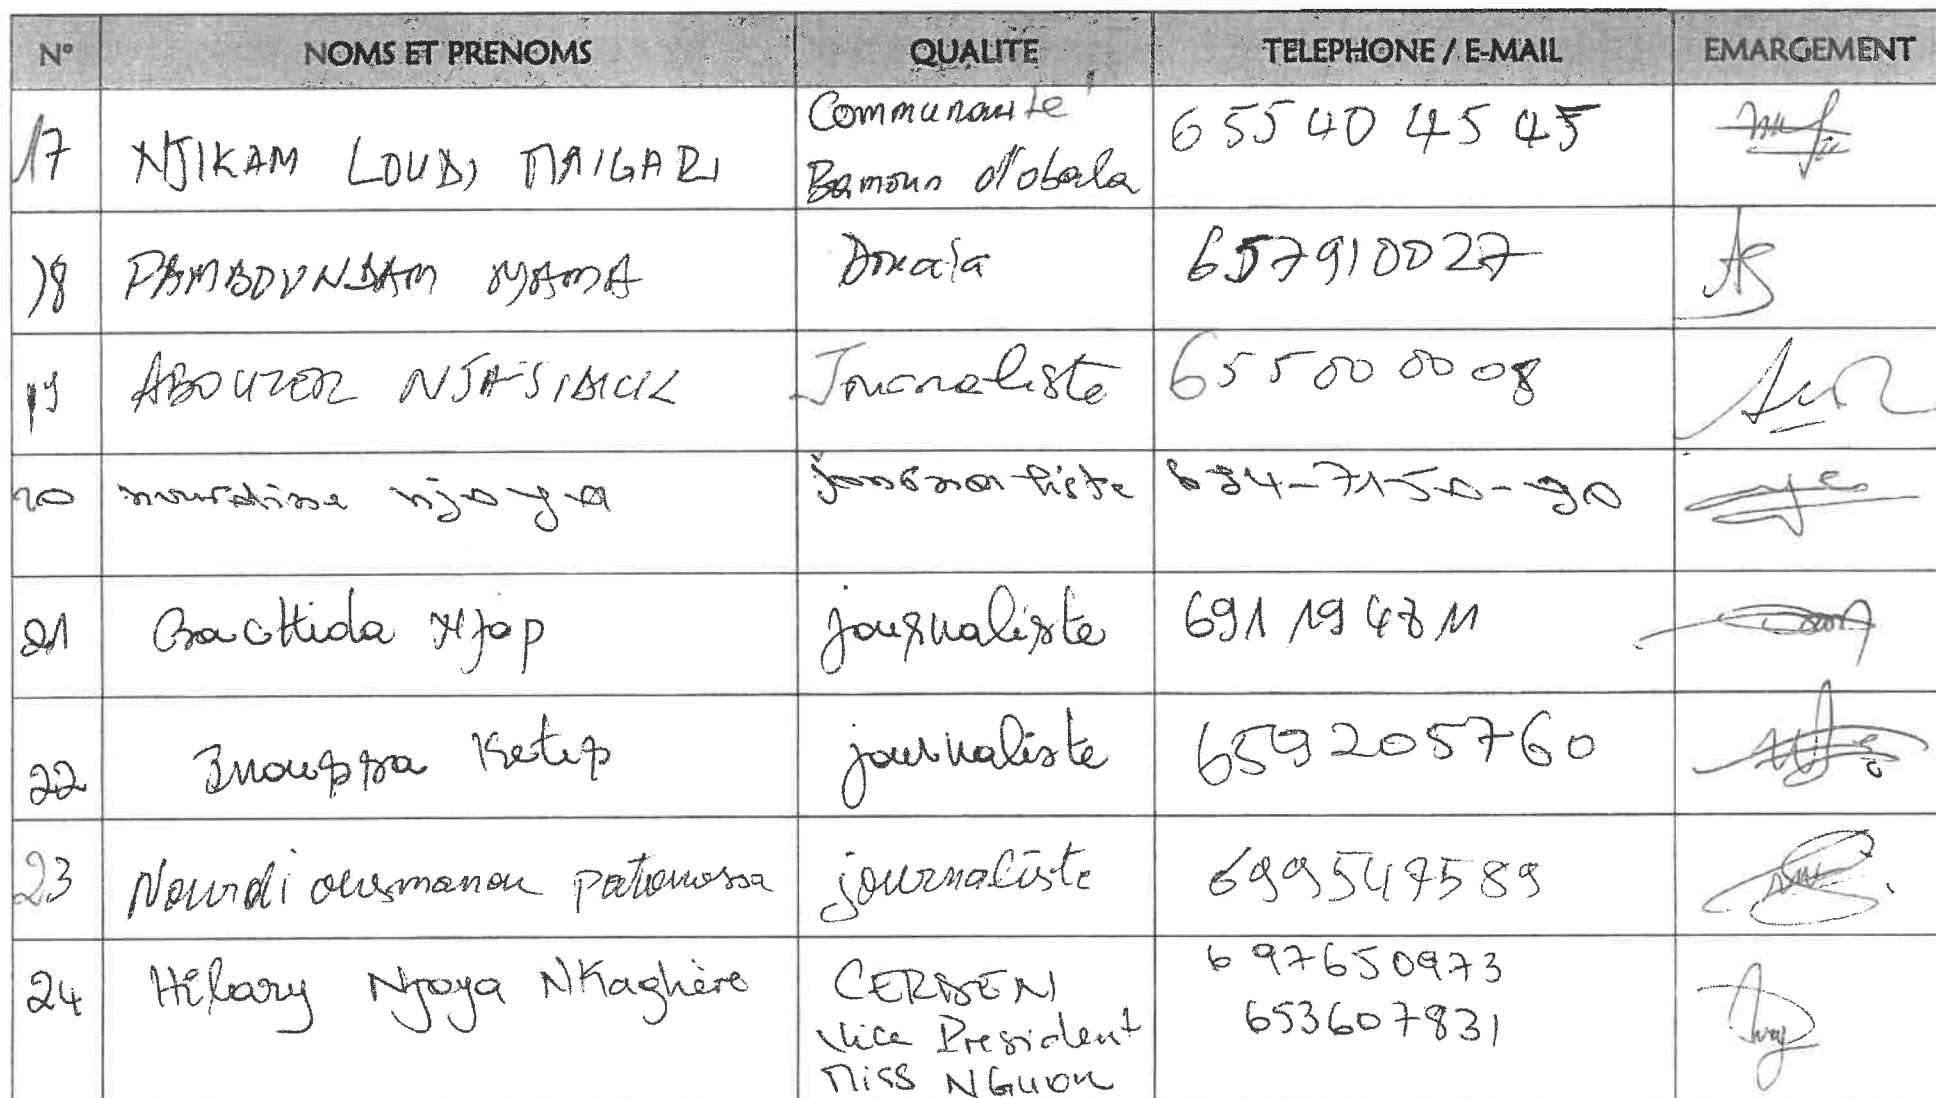 N° NOMS ET PRENOMS QUALITE TELEPHONE / E-MAIL EMARGEMENT
17 NJIKAM LOUDI MAIGARI Communauté Bamoun d'obala 655 40 45 45
18 PAMBOUNDAM MAMA Douala 657910027
19 ABOUZER Journaliste 655 00 00 08
20 nourdine njoya journaliste 694-71-50-90
21 Njap journaliste 691 19 48 11
22 Inoussa Ketup journaliste 659205760
23 Nourdi ousmanou patouossa journaliste 699547589
24 Hilary Njoya NKaghère CERBEN 697650973
Vice President 653607831
Miss NGUON